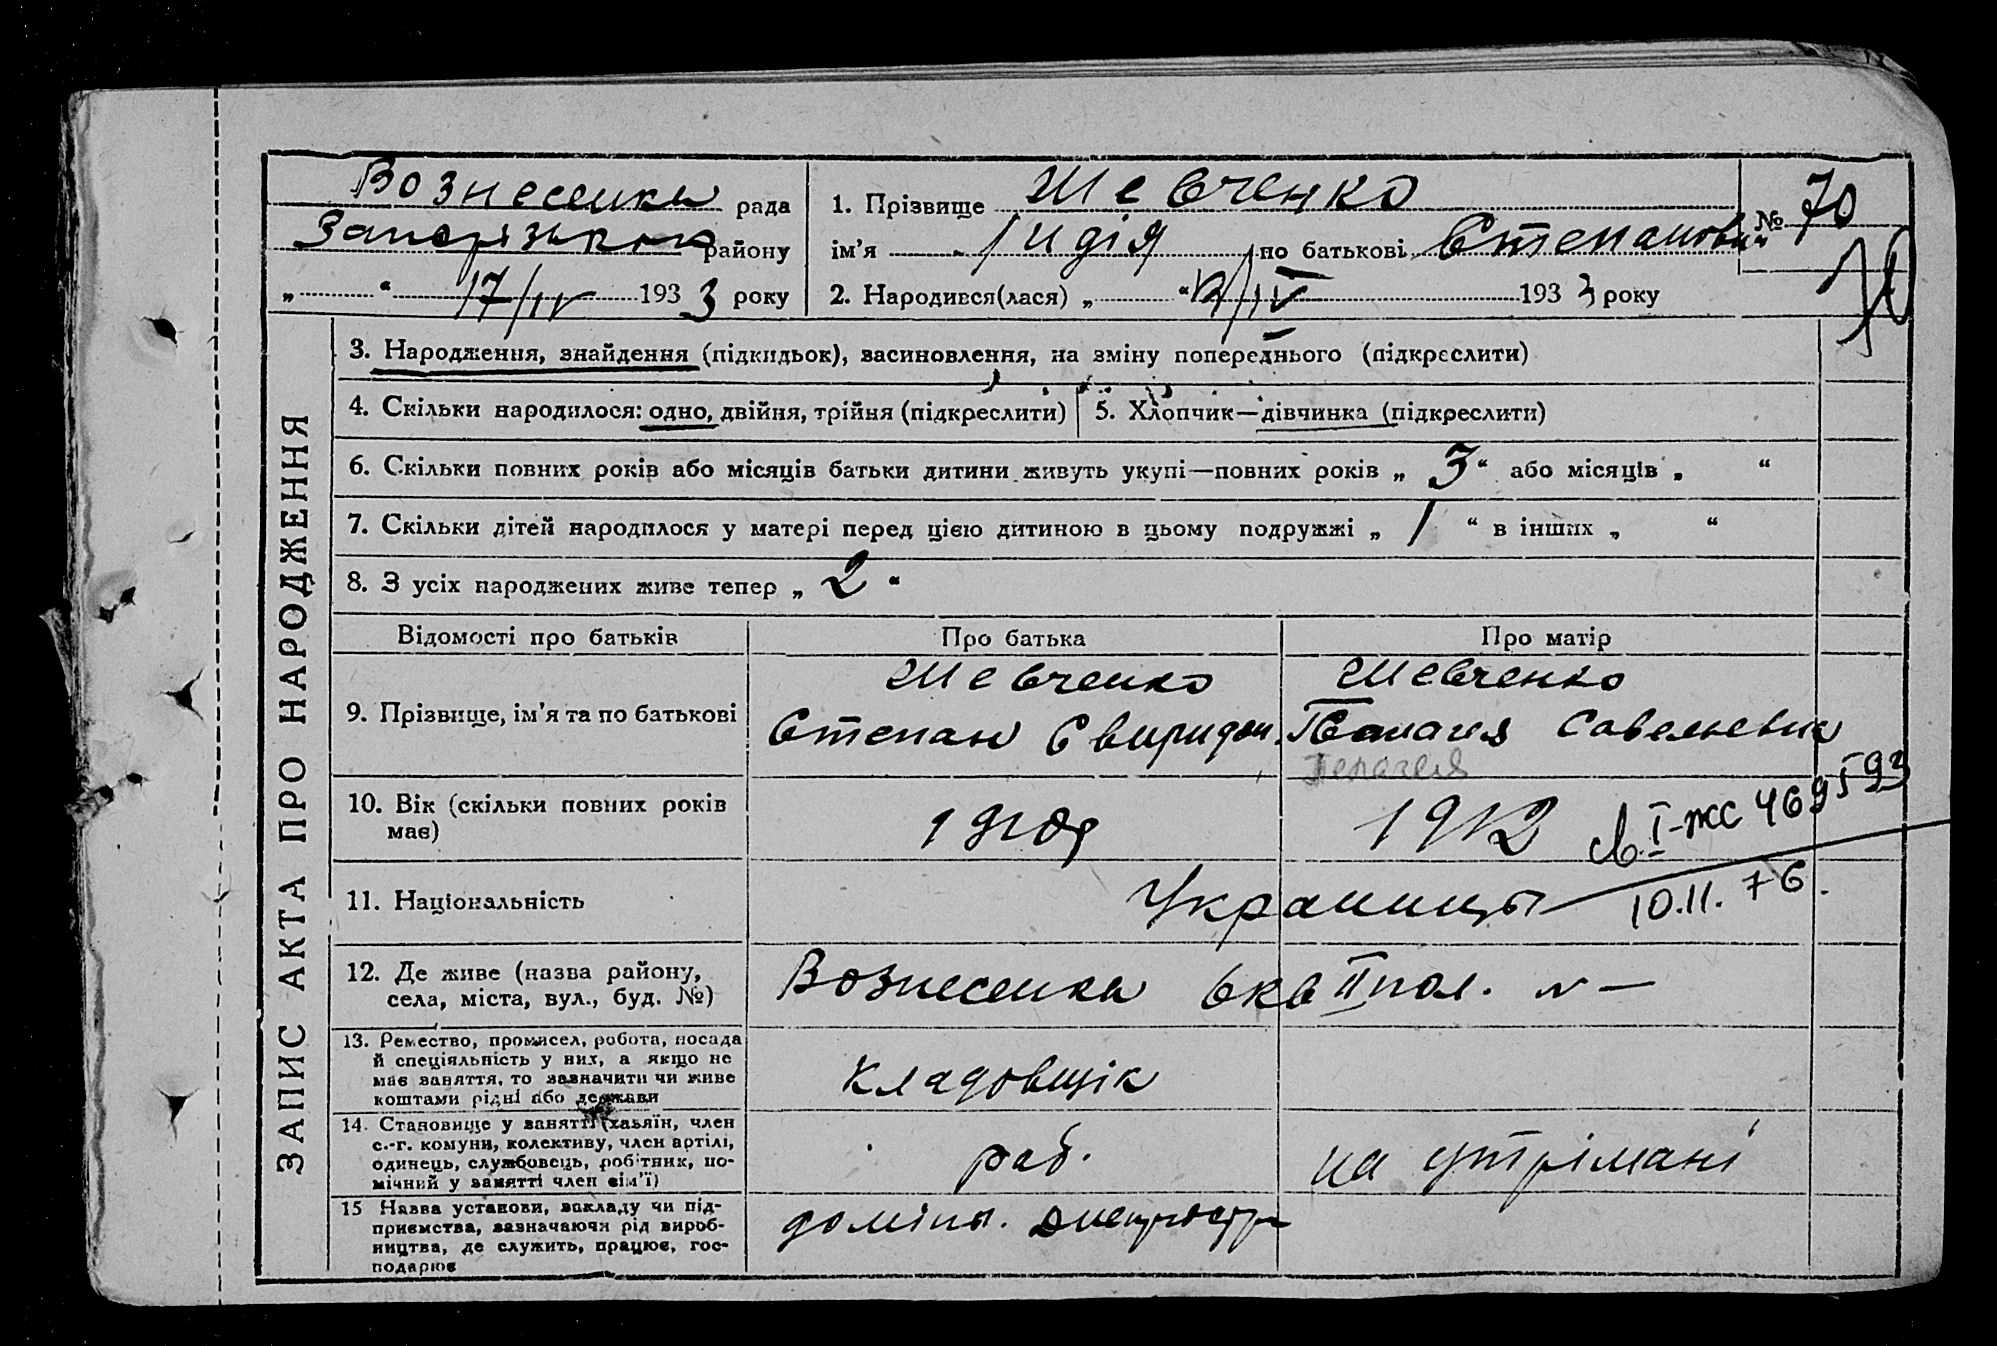 Вознесенка рада
Запорізького району
„ “ 17/IV 1933 року
1. Прізвище Шевченко
ім’я Лидія по батькові Степановн
2. Народився(лася) „ “ 12/IV 1933 року
№ 70
70
ЗАПИС АКТА ПРО НАРОДЖЕННЯ
3. Народження, знайдення (підкидьок), засиновлення, на зміну попереднього (підкреслити)
4. Скільки народилося: одно, двійня, трійня (підкреслити)
5. Хлопчик—дівчинка (підкреслити)
6. Скільки повних років або місяців батьки дитини живуть укупі—повних років „ 3 “ або місяців „ “
7. Скільки дітей народилося у матері перед цією дитиною в цьому подружжі „ 1 “ в інших „ “
8. З усіх народжених живе тепер „ 2 “
Відомості про батьків Про батька Про матір
9. Прізвище, ім’я та по батькові
Шевченко
Степан Свиридон.
Шевченко
Пелагея Савельевна
Пелагея
10. Вік (скільки повних років
має)
1912
св. I-ЖС 469593
10.11.76.
11. Національність
Украинцы
12. Де живе (назва району,
села, міста, вул., буд. №)
Вознесенка 6 кв II пол. № —
13. Ремество, промисел, робота, посада
й спеціяльність у них, а якщо не
має заняття, то зазначити чи живе
коштами рідні або держави
кладовщік
14. Становище у занятті (хазяїн, член
с.-г. комуни, колективу, член артілі,
одинець, службовець, робітник, по-
мічний у занятті член сім’ї)
раб. на утрімані
15 Назва установи, закладу чи під-
приємства, зазначаючи рід вироб-
ництва, де служить, працює, гос-
подарює
Днепростр